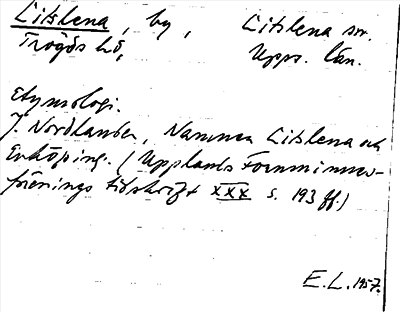 Litslena, by, Litslena sn.
Trögds hd, Upps. län.
Etymologi.
J. Nordlander, Namnen Litslena och
Enköping. (Upplands Fornminnes-
förenings tidskrift XXX s. 193 ff.)
E.L. 1957.